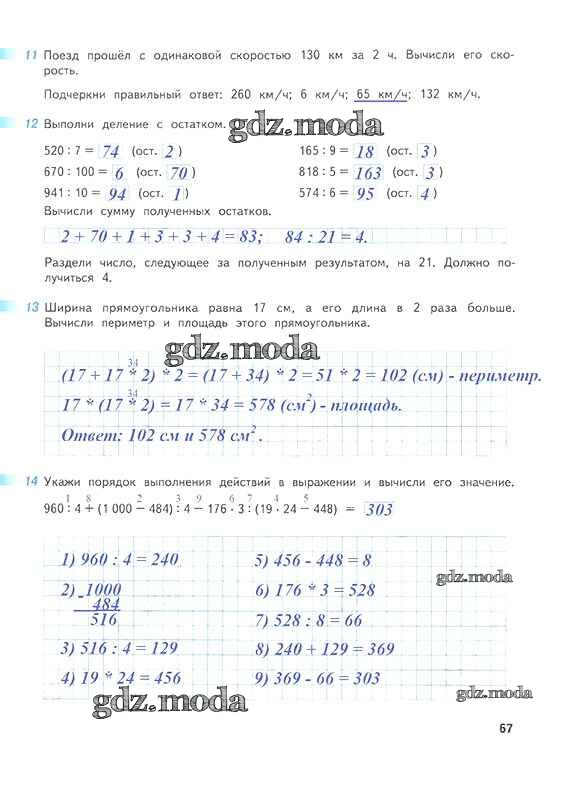 11 Поезд прошёл с одинаковой скоростью 130 км за 2 ч. Вычисли его ско-
рость.
Подчеркни правильный ответ: 260 км/ч; 6 км/ч; 65 км/ч; 132 км/ч.
12 Выполни деление с остатком.
gdz.moda
520 : 7 = 74 (ост. 2) 165 : 9 = 18 (ост. 3)
670 : 100 = 6 (ост. 70) 818 : 5 = 163 (ост. 3)
941 : 10 = 94 (ост. 1) 574 : 6 = 95 (ост. 4)
Вычисли сумму полученных остатков.
2 + 70 + 1 + 3 + 3 + 4 = 83; 84 : 21 = 4.
Раздели число, следующее за полученным результатом, на 21. Должно по-
лучиться 4.
13 Ширина прямоугольника равна 17 см, а его длина в 2 раза больше.
Вычисли периметр и площадь этого прямоугольника.
gdz.moda
34
(17 + 17 * 2) * 2 = (17 + 34) * 2 = 51 * 2 = 102 (см) - периметр.
34
17 * (17 * 2) = 17 * 34 = 578 (см²) - площадь.
Ответ: 102 см и 578 см².
14 Укажи порядок выполнения действий в выражении и вычисли его значение.
1 8 2 3 9 6 7 4 5
960 : 4 + (1 000 − 484) : 4 − 176 · 3 : (19 · 24 − 448) = 303
1) 960 : 4 = 240 5) 456 - 448 = 8
gdz.moda
2) - 1000 6) 176 * 3 = 528
484
516 7) 528 : 8 = 66
3) 516 : 4 = 129 8) 240 + 129 = 369
4) 19 * 24 = 456 9) 369 - 66 = 303
gdz.moda
gdz.moda
67